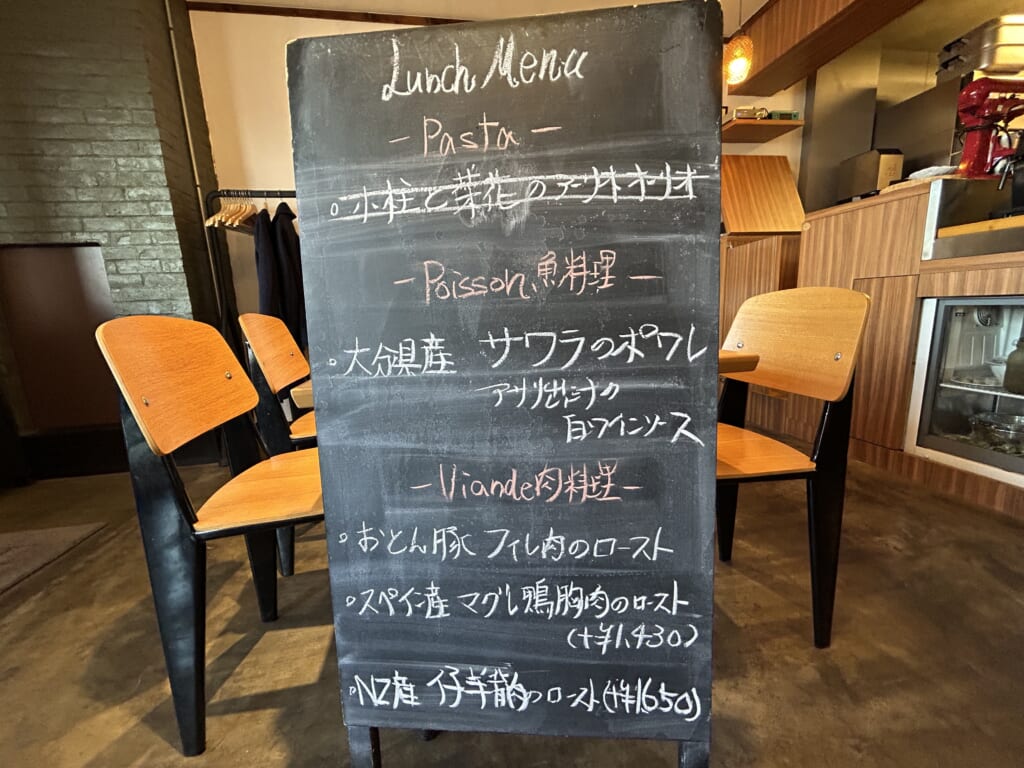 Lunch Menu
- Pasta -
。小柱と菜花のアーリオオーリオ
- Poisson 魚料理 -
。大分県産 サワラのポワレ
アサリ出汁の
白ワインソース
- Viande 肉料理 -
。おとん豚 フィレ肉のロースト
。スペイン産 マグレ鴨胸肉のロースト
(+¥1,430)
。NZ産 仔羊背肉のロースト(+¥1,650)